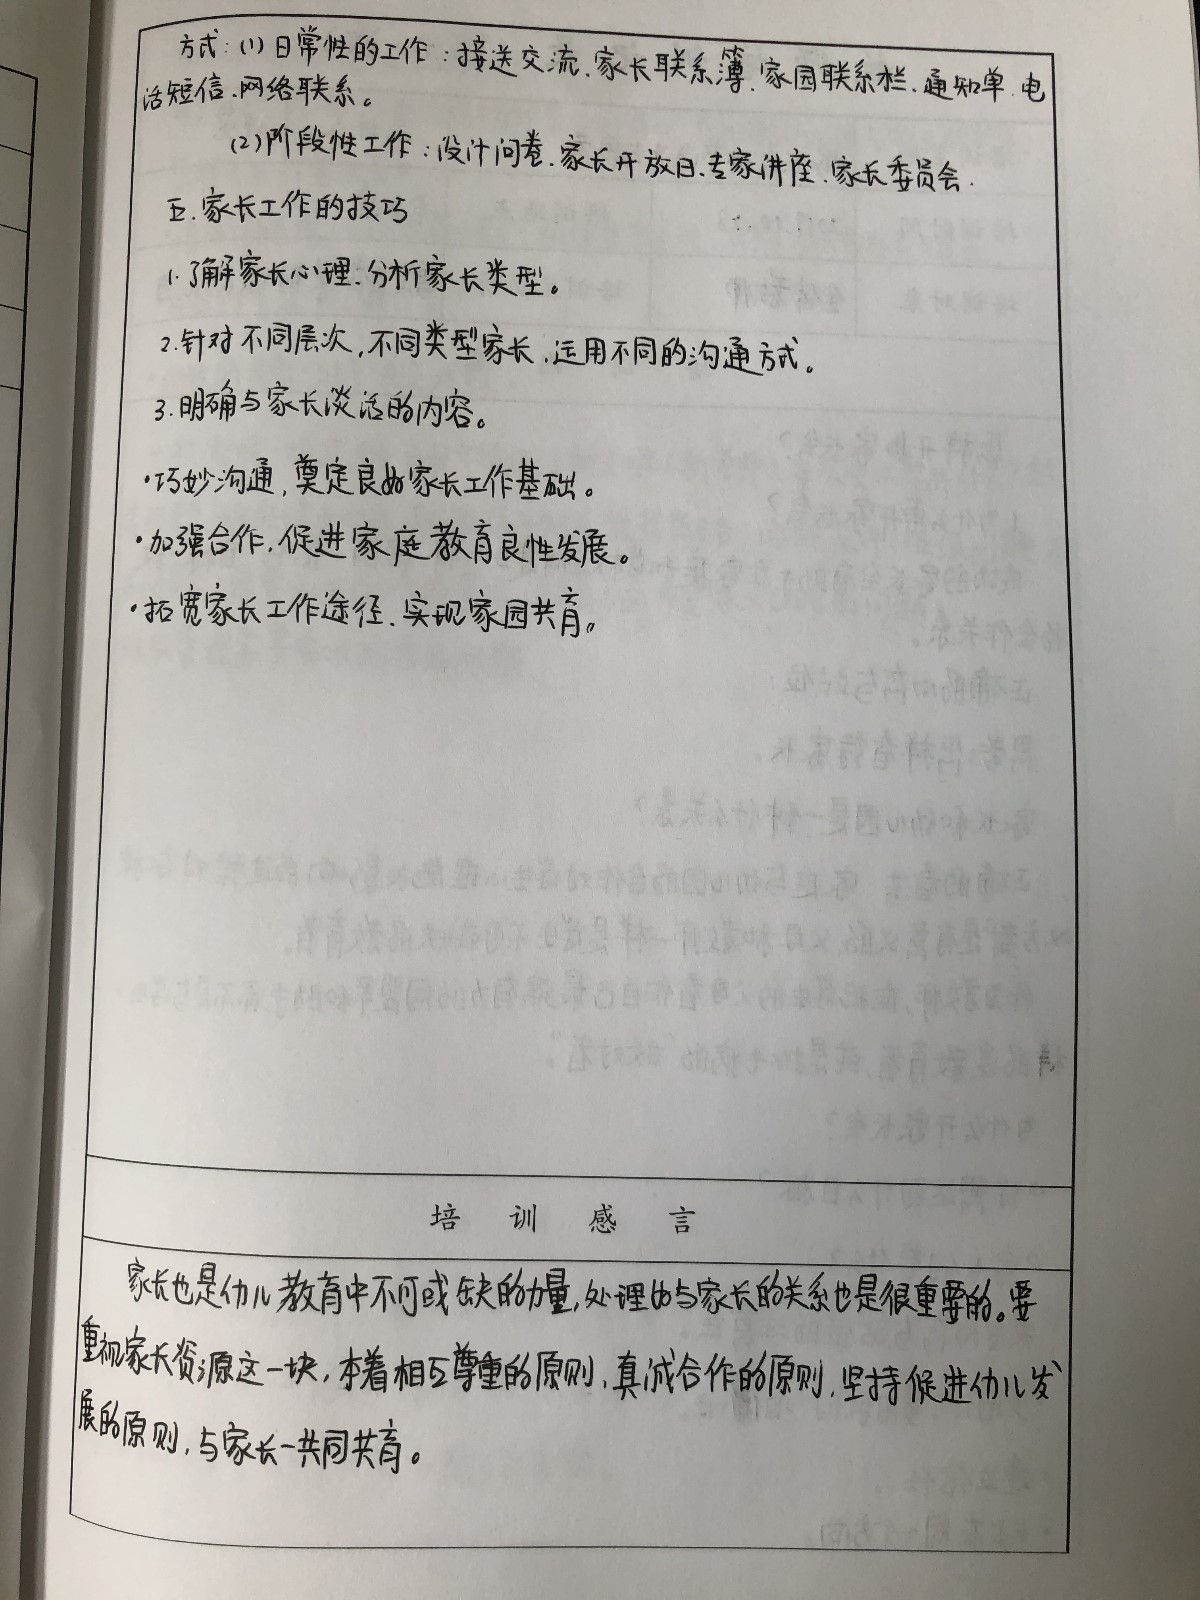 方式：(1)日常性的工作：接送交流、家长联系簿、家园联系栏、通知单、电
话短信、网络联系。
(2)阶段性工作：设计问卷、家长开放日、专家讲座、家长委员会.
五、家长工作的技巧
1.了解家长心理、分析家长类型。
2.针对不同层次,不同类型家长,运用不同的沟通方式。
3.明确与家长谈话的内容。
·巧妙沟通,奠定良好家长工作基础。
·加强合作,促进家庭教育良性发展。
·拓宽家长工作途径、实现家园共育。
培训感言
家长也是幼儿教育中不可或缺的力量,处理好与家长的关系也是很重要的。要
重视家长资源这一块,本着相互尊重的原则、真诚合作的原则,坚持促进幼儿发
展的原则,与家长一共同共育。